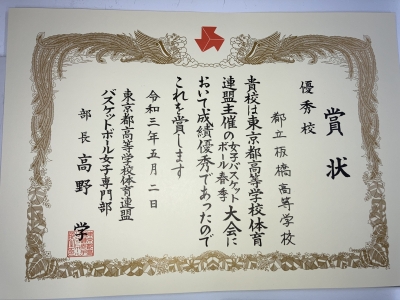 賞状
優秀校
都立板橋高等学校
貴校は東京都高等学校体育
連盟主催の女子バスケットボール春季大会に
おいて成績優秀であったので
これを賞します
令和三年五月二日
東京都高等学校体育連盟
バスケットボール女子専門部
部長 高野 学